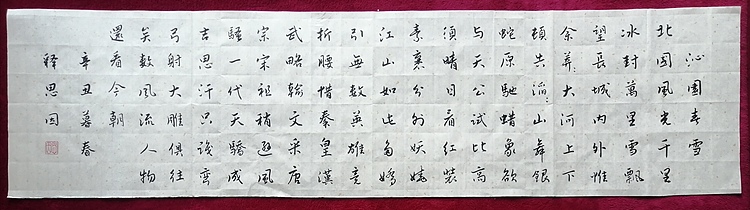 沁園春雪
北國風光千里
冰封萬里雪飄
望長城內外惟
余莽々大河上下
頓失滔々山舞銀
蛇原馳蜡象欲
与天公試比高
須晴日看紅裝
素裹分外妖嬈
江山如此多嬌
引無數英雄竞
折腰惜秦皇漢
武略輸文采唐
宗宋祖稍遜風
騷一代天驕成
吉思汗只識彎
弓射大雕俱往
矣數風流人物
還看今朝
辛丑暮春
释思因